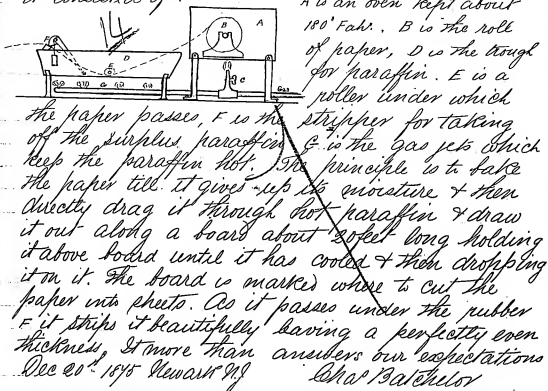 A is an oven kept about
14
180° Fahr. B is the roll
of paper, D is the trough
for paraffin. E is a
roller under which
the paper passes, F is the stripper for taking
off the surplus paraffin G is the gas jets which
keep the paraffin hot. The principle is to bake
the paper till it gives up its moisture & then
directly drag it through hot paraffin & draw
it out along a board about 20 feet long holding
it above board until it has cooled & then dropping
it on it. The board is marked where to cut the
paper into sheets. As it passes under the rubber
F it strips it beautifully leaving a perfectly even
thickness. It more than answers our expectations
Dec 20th 1875 Newark NJ Chas Batchelor
A
B
C
D
E